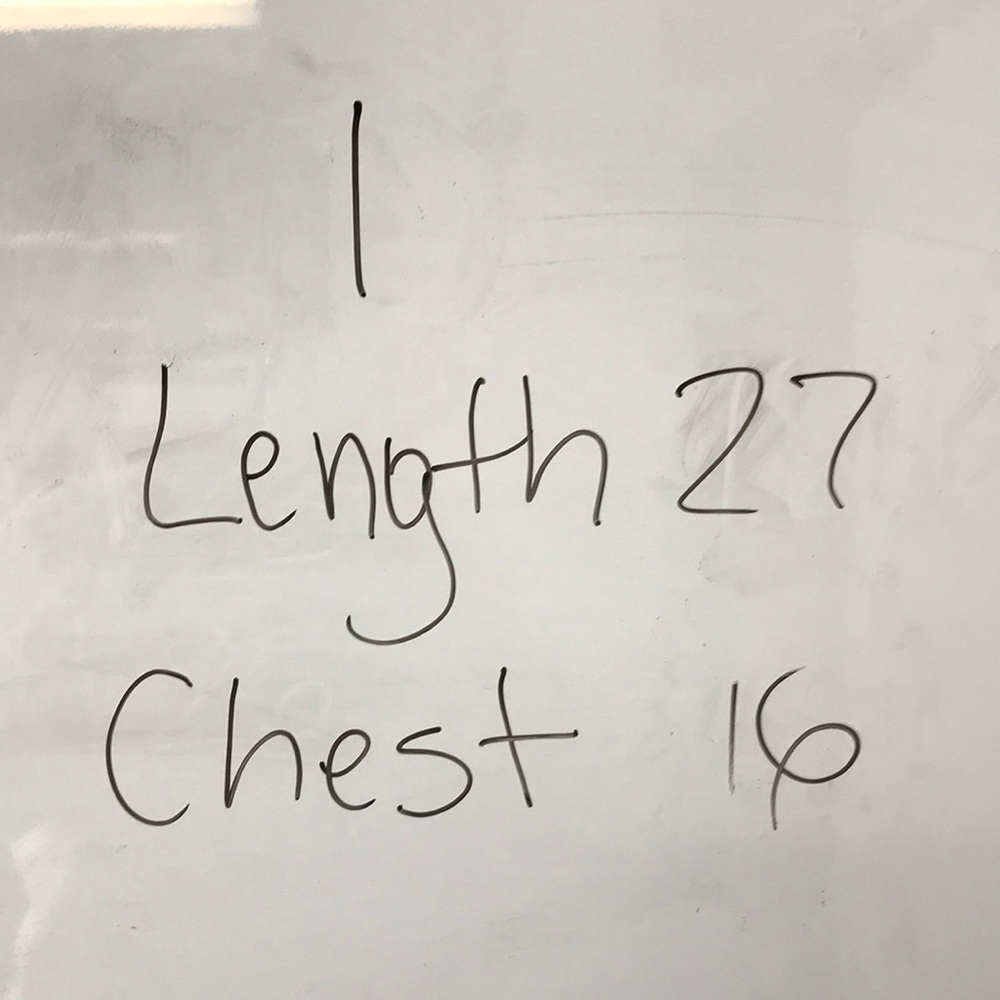 1
Length 27
Chest 16